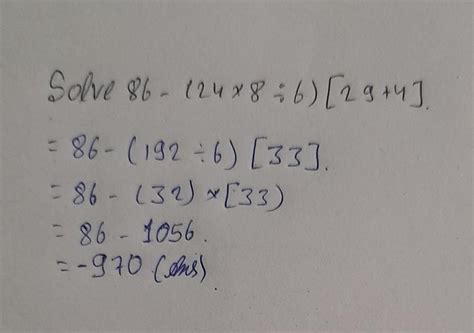 Solve 86 - (24 × 8 ÷ 6) [29+4].
= 86 - (192 ÷ 6) [33].
= 86 - (32) × [33)
= 86 - 1056.
= -970 (Ans)